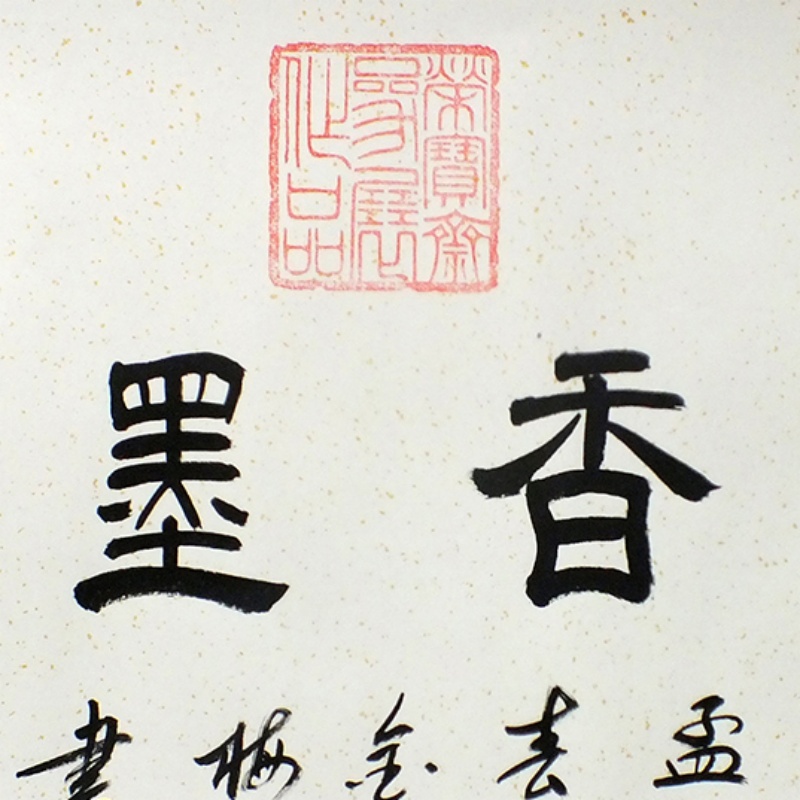 榮寶齋
參展
作品
香墨
孟春金梅書